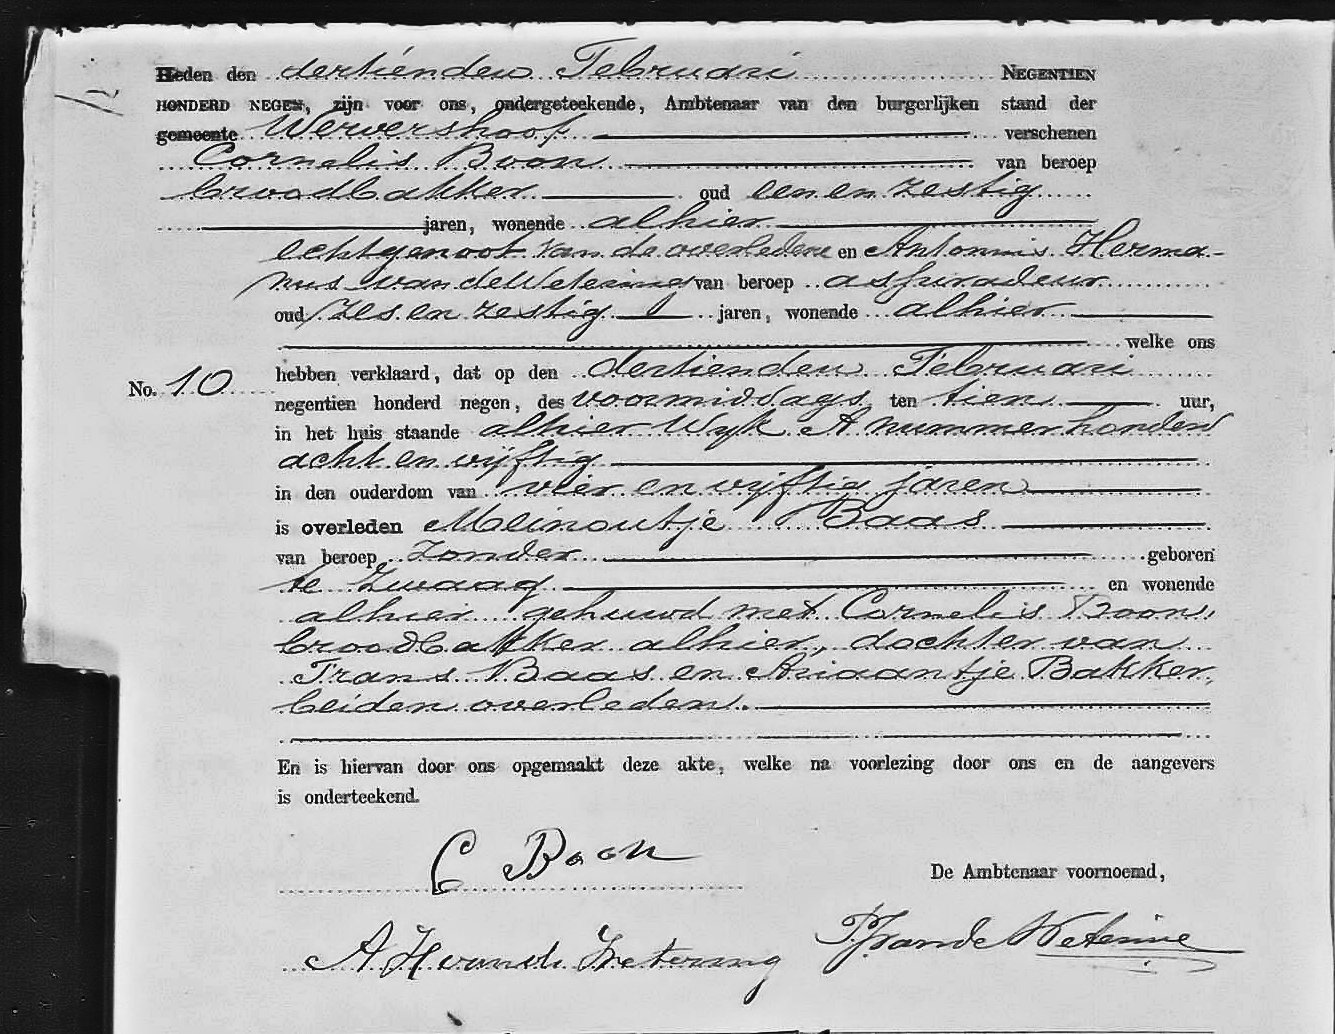 Heden den dertienden Februari NEGENTIEN
HONDERD NEGEN, zijn voor ons, ondergeteekende, Ambtenaar van den burgerlijken stand der
gemeente Wervershoof verschenen
Cornelis Boon van beroep
broodbakker oud een en zestig
jaren, wonende alhier
echtgenoot van de overledene en Antonius Herma-
nus van de Wetering van beroep assuradeur
oud zes en zestig jaren, wonende alhier
welke ons
No. 10 hebben verklaard, dat op den dertienden Februari
negentien honderd negen, des voormiddags ten tien uur,
in het huis staande alhier Wyk A nummer honderd
acht en vijftig
in den ouderdom van vier en vijftig jaren
is overleden Meinoutje Baas
van beroep zonder geboren
te Zwaag en wonende
alhier gehuwd met Cornelis Boon,
broodbakker alhier, dochter van
Frans Baas en Ariaantje Bakker,
beiden overleden.
En is hiervan door ons opgemaakt deze akte, welke na voorlezing door ons en de aangevers
is onderteekend.
C Boon
De Ambtenaar voornoemd,
A H vande Wetering
van de Wetering